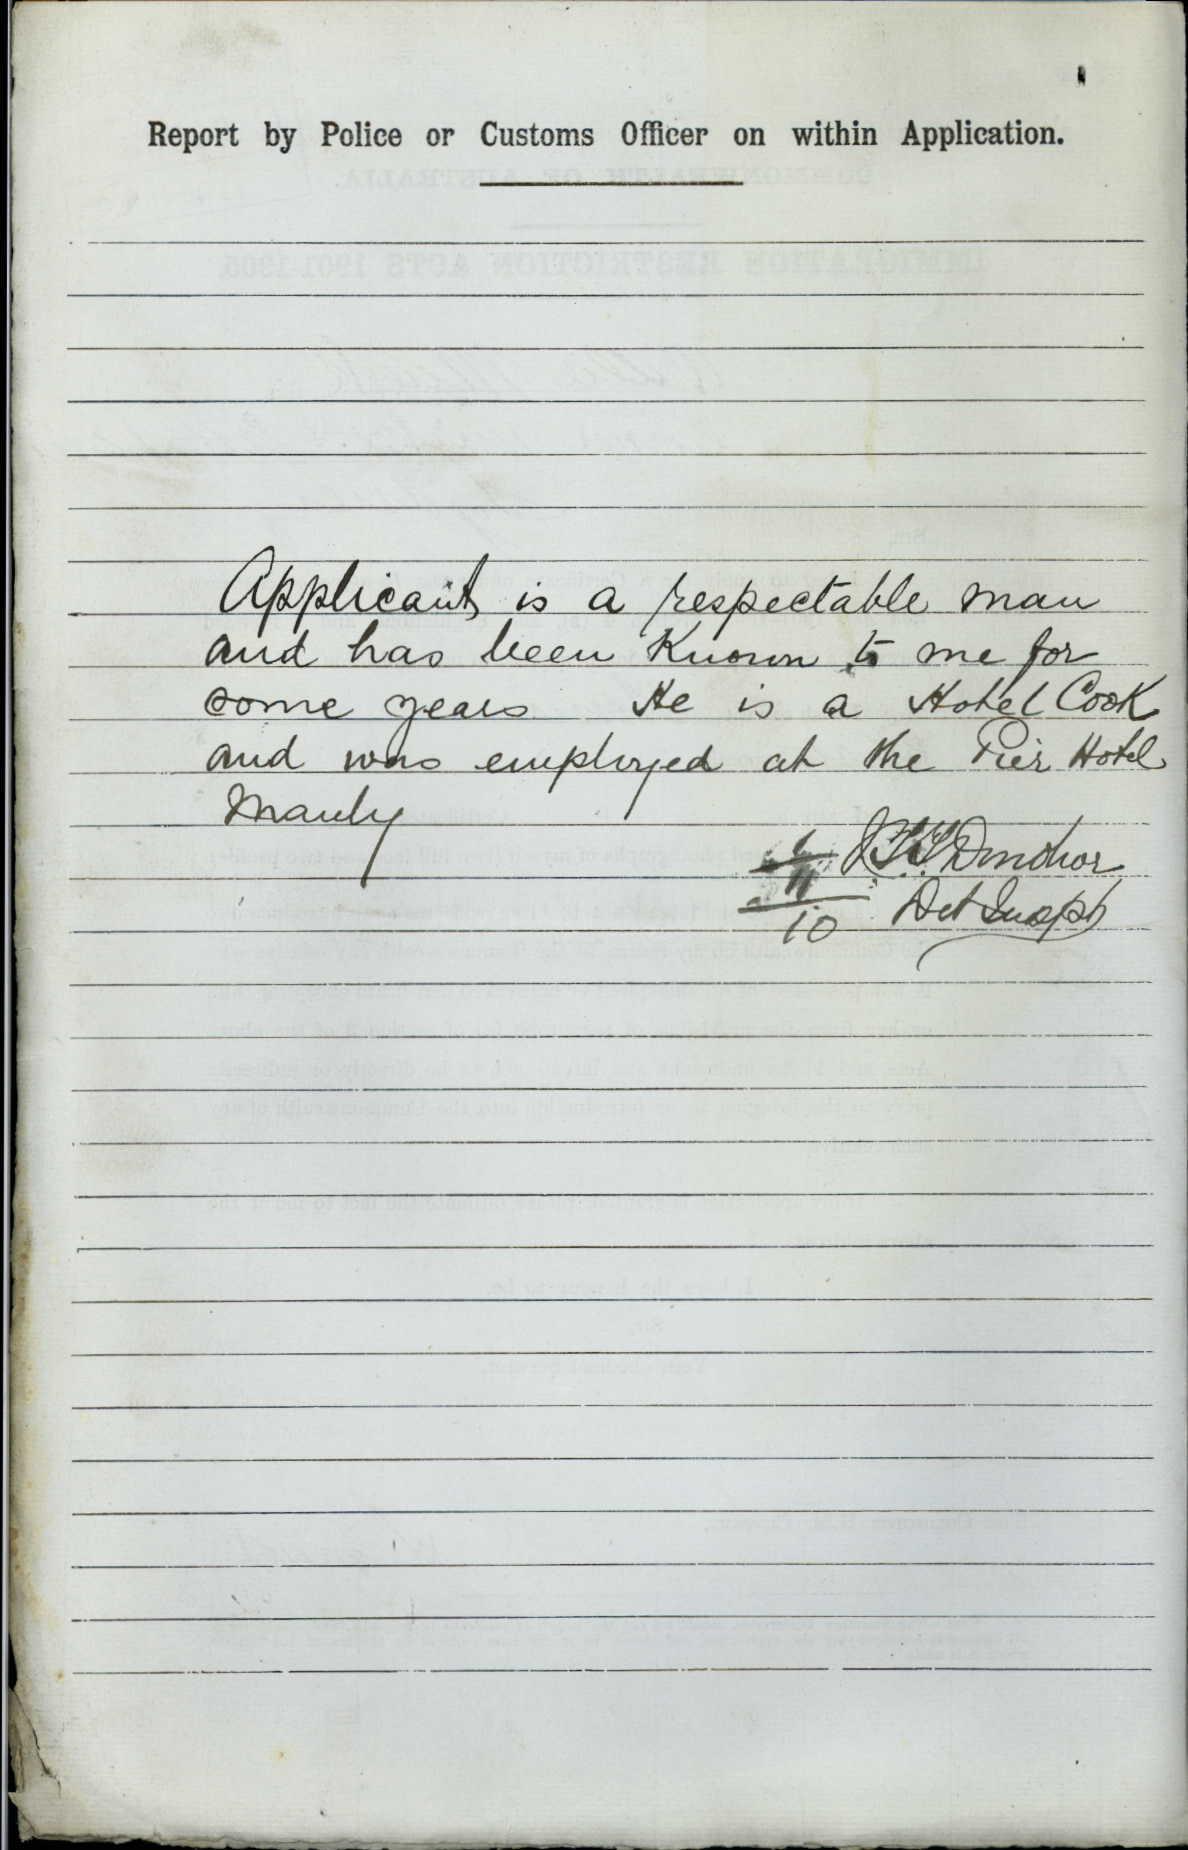 Report by Police or Customs Officer on within Application.
Applicant is a respectable man
and has been Known to me for
some years He is a Hotel Cook
and was employed at the Pier Hotel
Manly
10